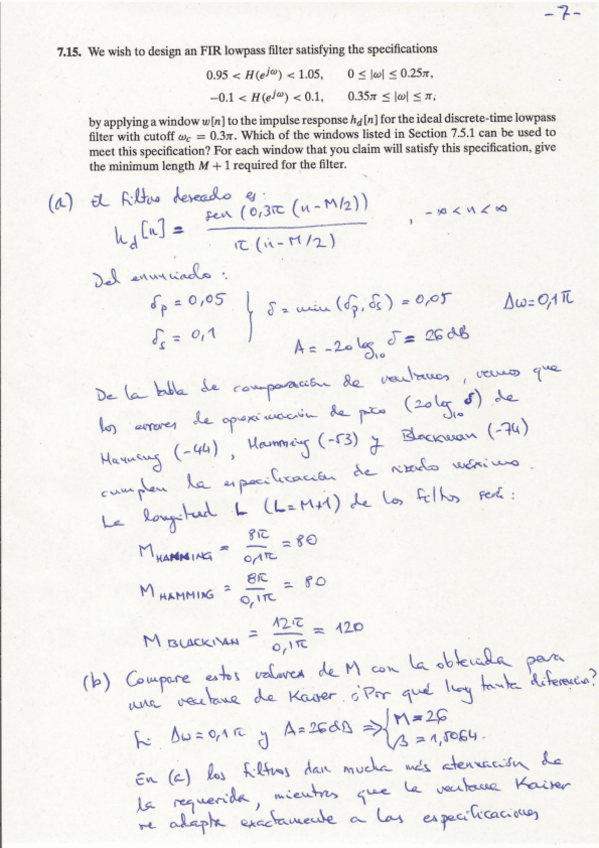 -7-
7.15. We wish to design an FIR lowpass filter satisfying the specifications
0.95 < H(e^{jω}) < 1.05, 0 ≤ |ω| ≤ 0.25π,
−0.1 < H(e^{jω}) < 0.1, 0.35π ≤ |ω| ≤ π,
by applying a window w[n] to the impulse response h_d[n] for the ideal discrete-time lowpass
filter with cutoff ω_c = 0.3π. Which of the windows listed in Section 7.5.1 can be used to
meet this specification? For each window that you claim will satisfy this specification, give
the minimum length M + 1 required for the filter.
(a) El filtro deseado es:
h_d[n] = sen(0,3π(n-M/2)) / π(n-M/2) , -∞<n<∞
Del enunciado:
δ_p = 0,05
δ_s = 0,1 } δ = min(δ_p, δ_s) = 0,05 Δω=0,1π
A = -20log_10 δ = 26dB
De la tabla de comparación de ventanas, vemos que
los errores de aproximación de pico (20log_10 δ) de
Hanning (-44), Hamming (-53) y Blackman (-74)
cumplen la especificación de rizado máximo.
La longitud L (L=M+1) de los filtros será:
M HANNING = 8π/0,1π = 80
M HAMMING = 8π/0,1π = 80
M BLACKMAN = 12π/0,1π = 120
(b) Compare estos valores de M con la obtenida para
una ventana de Kaiser. ¿Por qué hay tanta diferencia?
Δω=0,1π y A=26dB ⇒ { M=26
β=1,5064.
En (a) los filtros dan mucha más atenuación de
la requerida, mientras que la ventana Kaiser
se adapta exactamente a las especificaciones